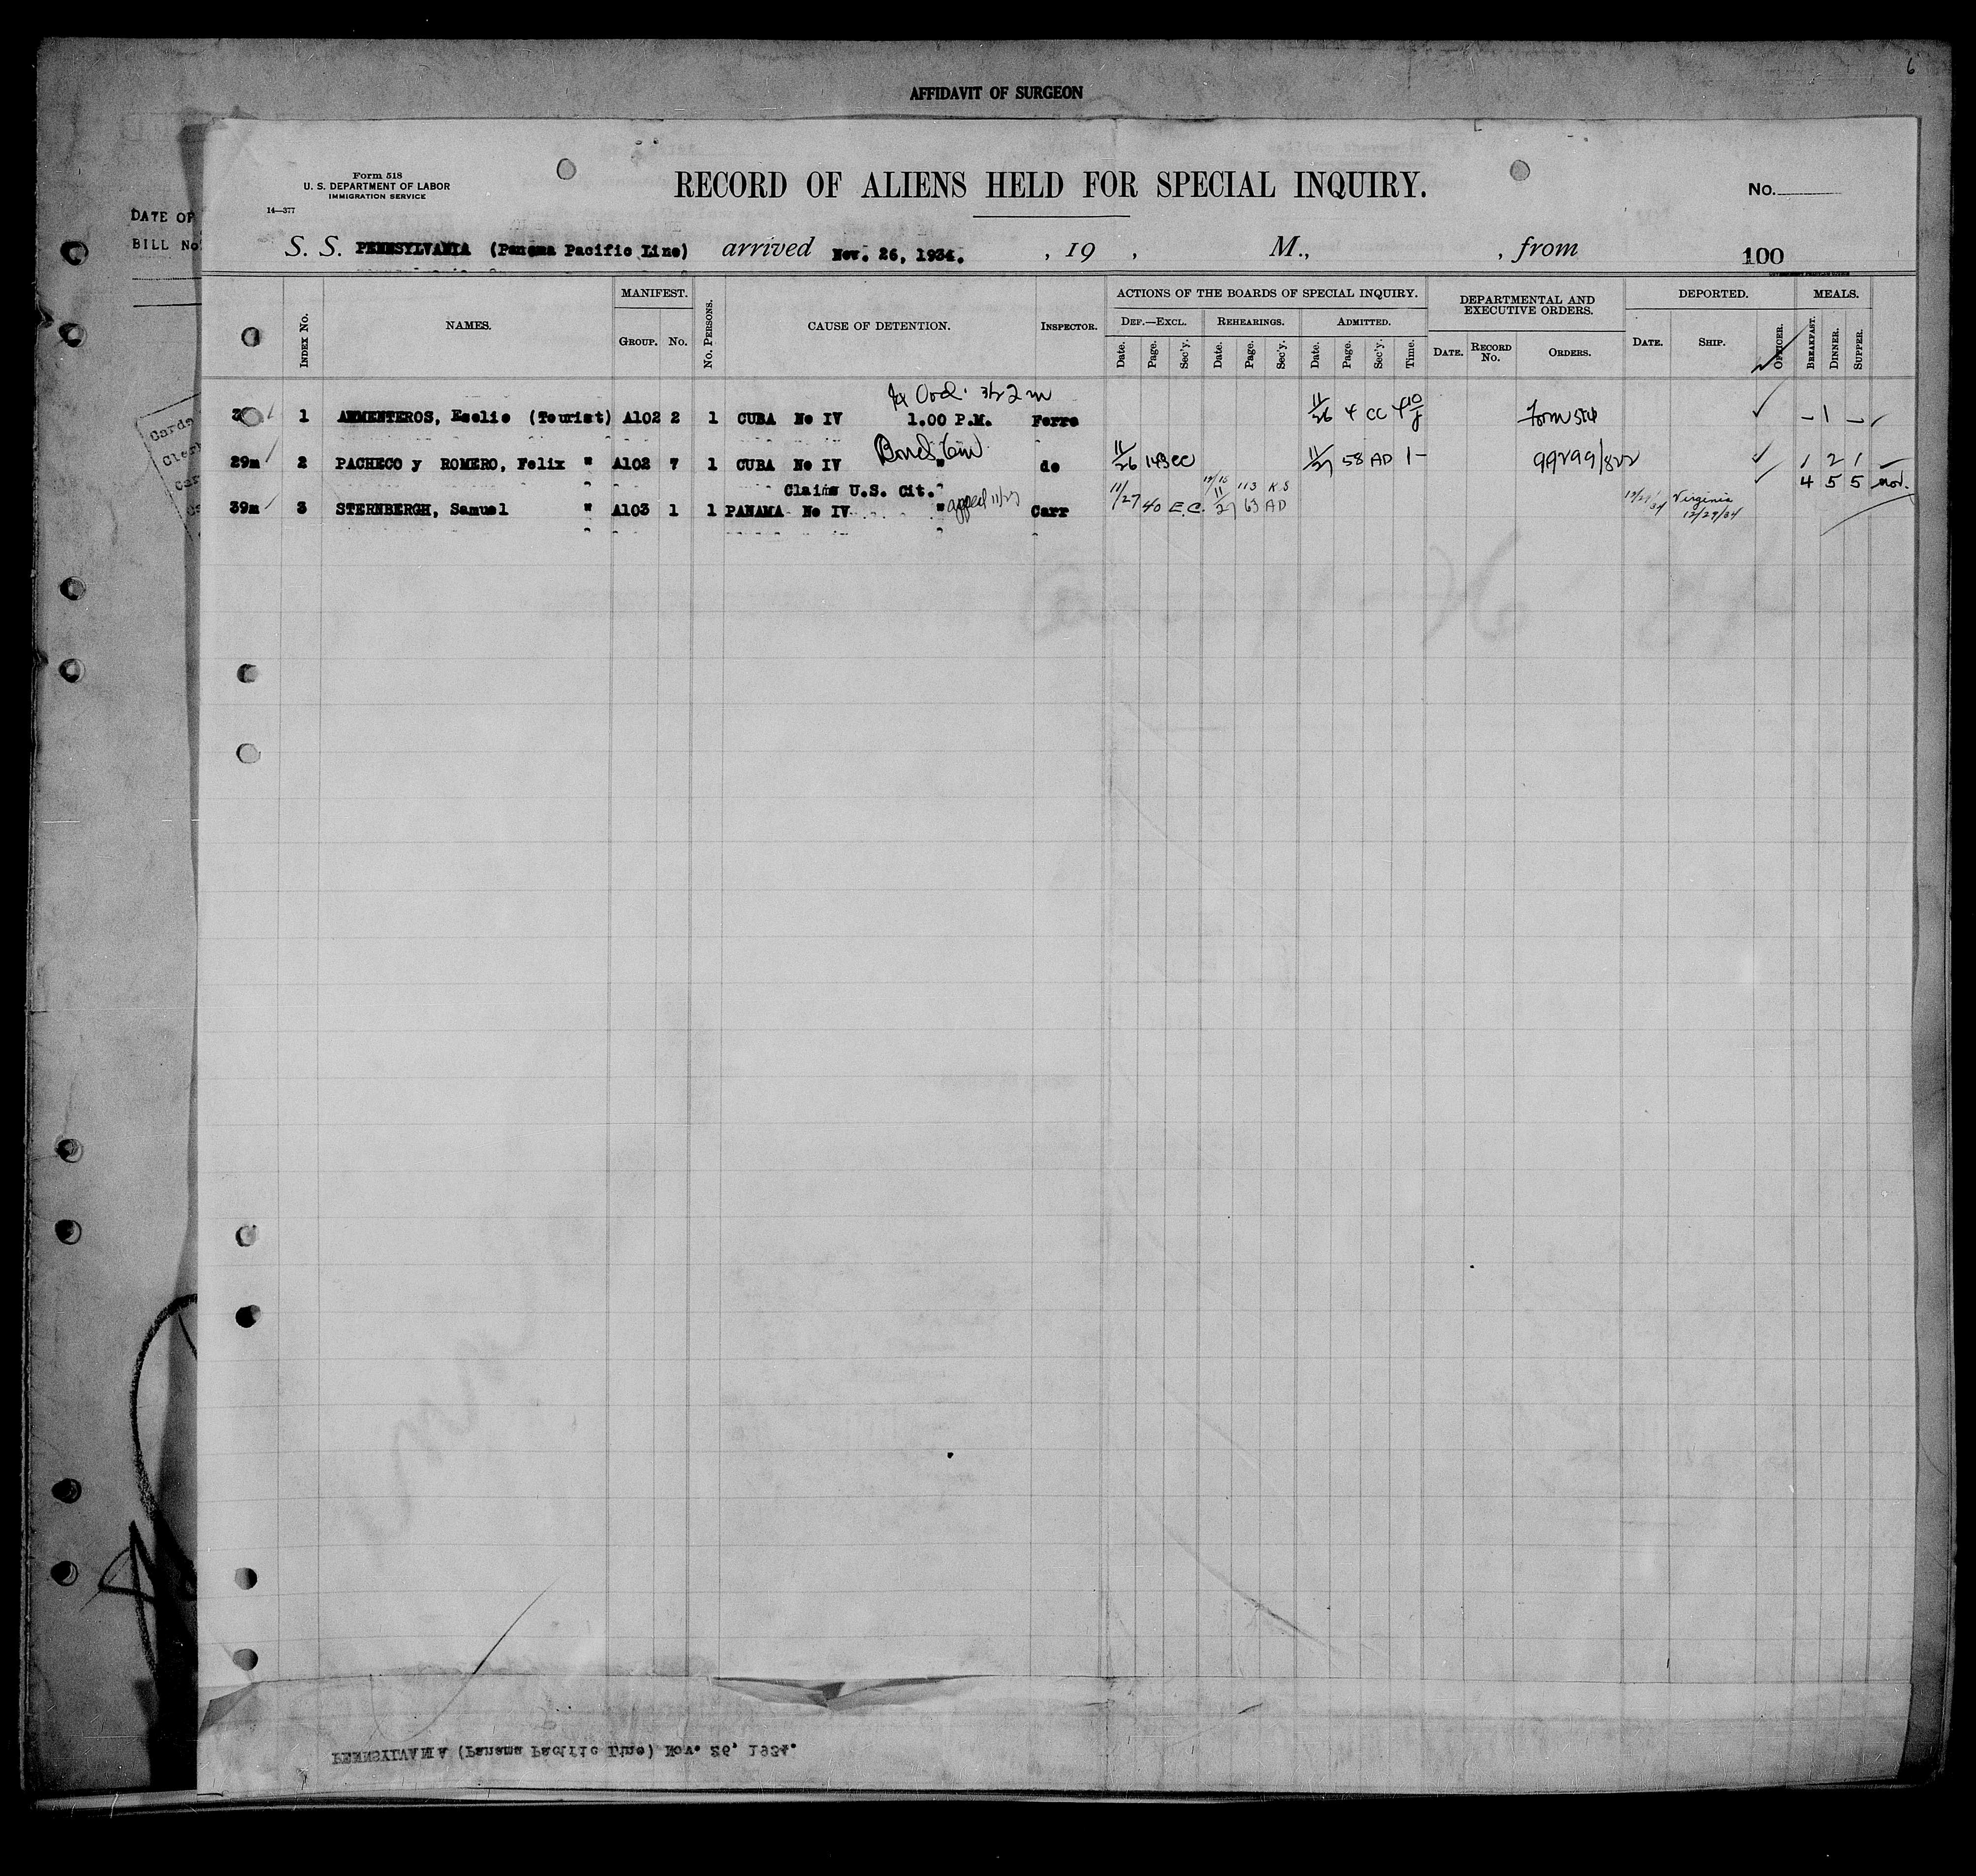 6
AFFIDAVIT OF SURGEON
Form 518
U. S. DEPARTMENT OF LABOR
IMMIGRATION SERVICE
14—377
RECORD OF ALIENS HELD FOR SPECIAL INQUIRY.
No.
DATE OF
BILL No
S. S. PENNSYLVANIA (Panama Pacific Line) arrived Nov. 26, 1934. , 19 , M., , from 100
INDEX No.
NAMES.
MANIFEST.
GROUP. No.
No. PERSONS.
CAUSE OF DETENTION.
INSPECTOR.
ACTIONS OF THE BOARDS OF SPECIAL INQUIRY.
DEF.—EXCL. REHEARINGS. ADMITTED.
Date. Page. Sec'y. Date. Page. Sec'y. Date. Page. Sec'y. Time.
DEPARTMENTAL AND
EXECUTIVE ORDERS.
DATE. RECORD No. ORDERS.
DEPORTED.
DATE. SHIP. OFFICER.
MEALS.
BREAKFAST. DINNER. SUPPER.
1 ARMENTEROS, Eselio (Tourist) A102 2 1 CUBA No IV 1.00 P.M. Ferro 11/26 4 CC - 1 -
29m 2 PACHECO y ROMERO, Felix " A102 7 1 CUBA No IV " do 11/26 143 CC 11/27 58 AD 1- 99299/822 1 2 1
Claims U.S. Cit.
39m 3 STERNBERGH, Samuel " A103 1 1 PANAMA No IV " Carr 11/27 40 E.C. 11/27 63 AD 113 KS Virginia 12/29/34 4 5 5 nov.
Cards
PENNSYLVANIA (Panama Pacific Line) Nov. 26, 1934.